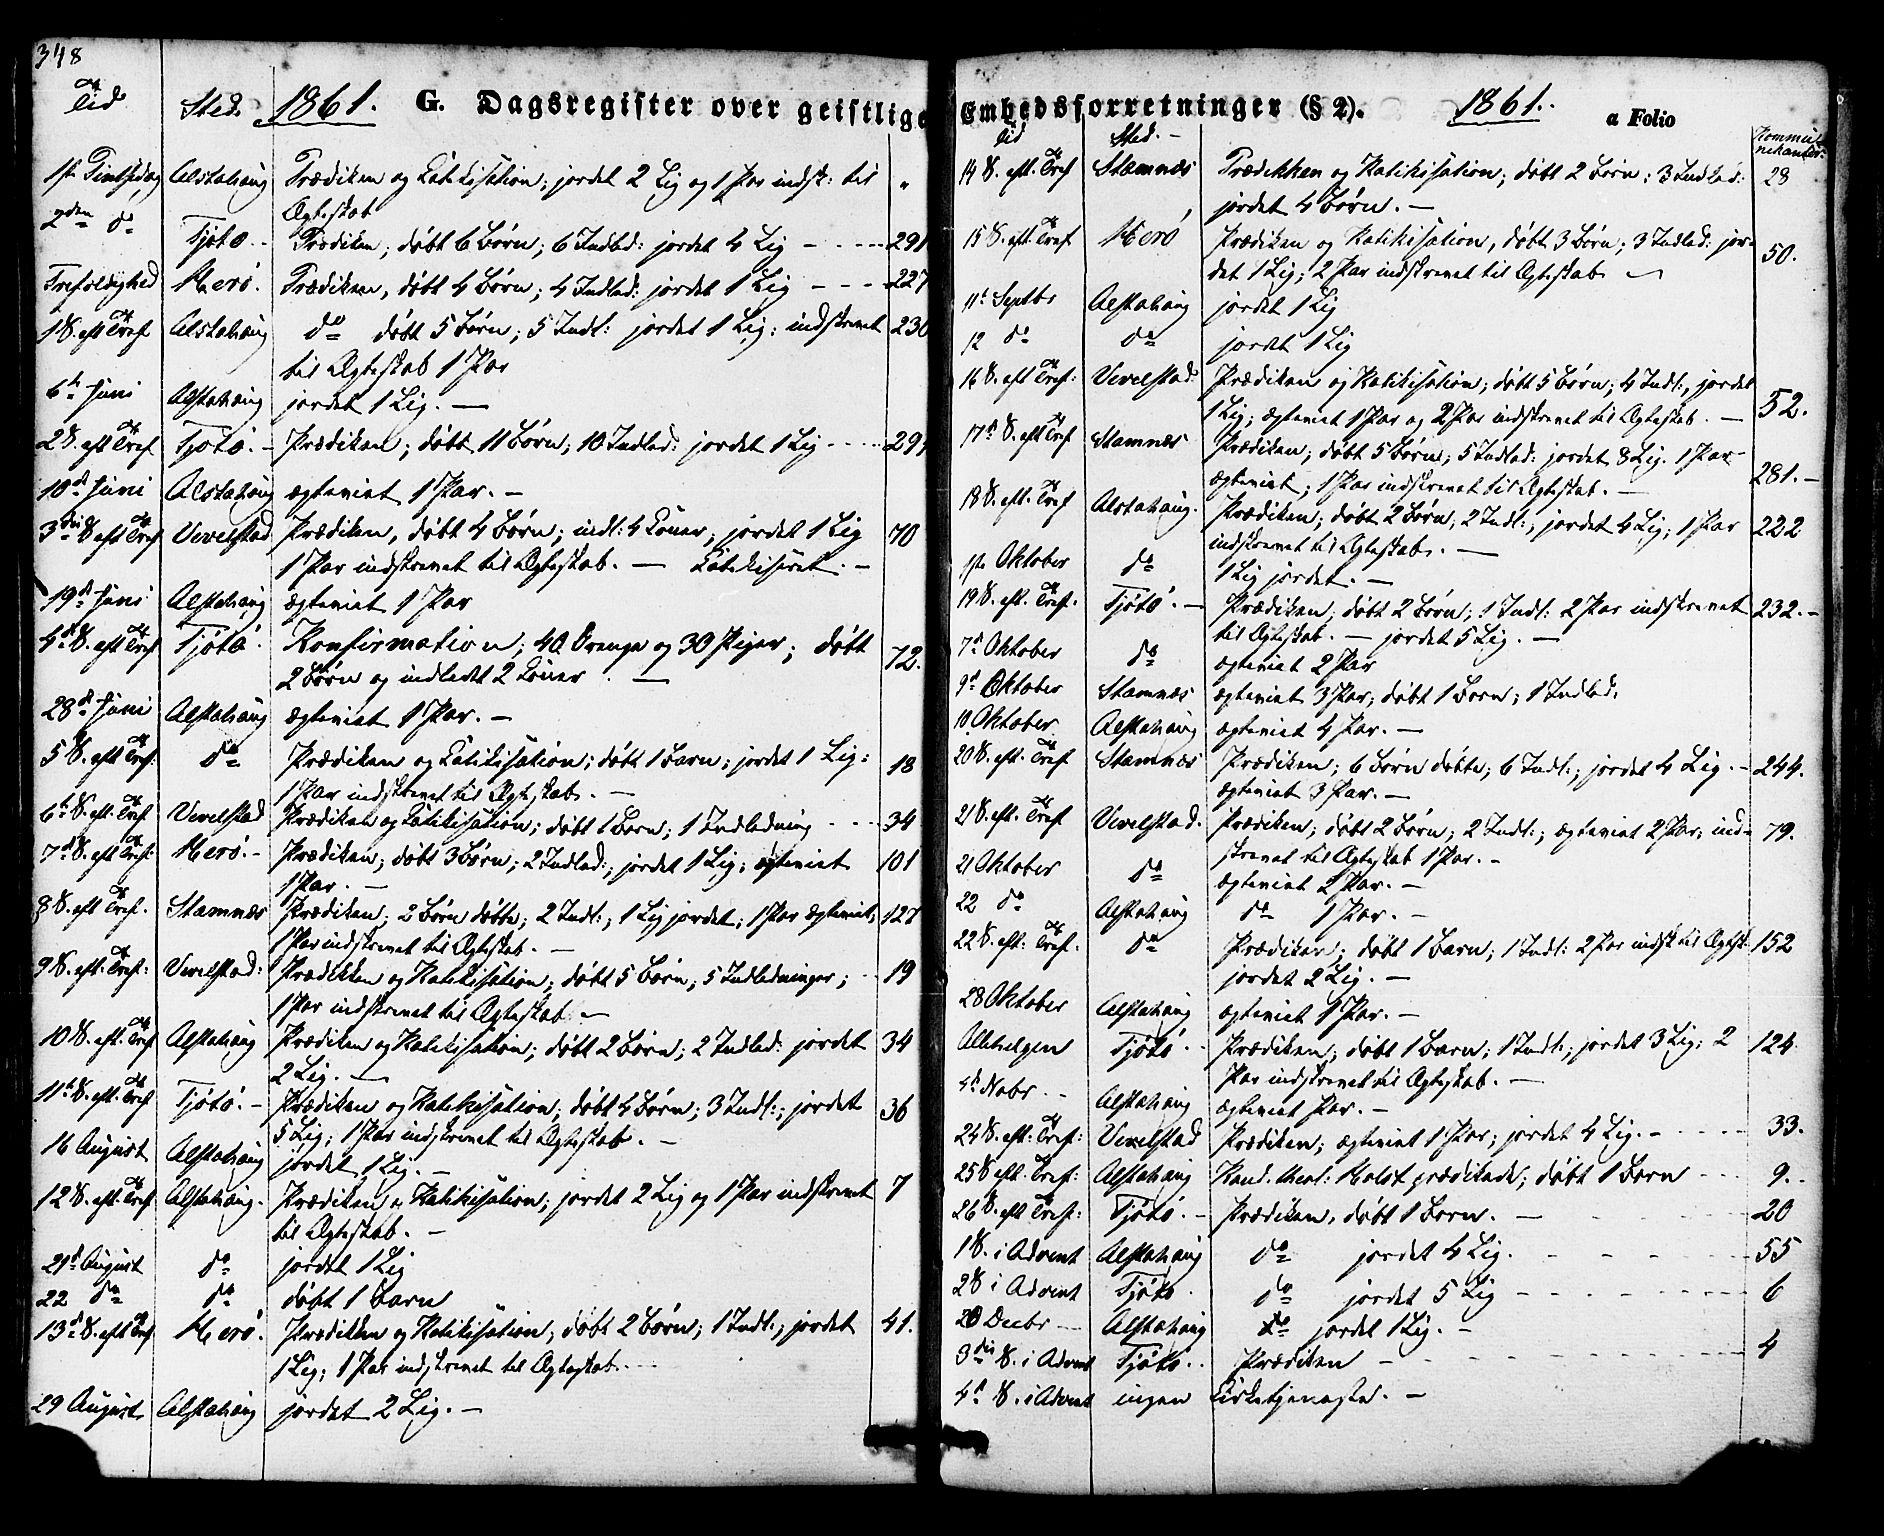 348
Tid Sted. 1861. G. Dagsregister over geistlige
1ste Pintsedag Alstahaug Prædiken og Catekisation; jordet 2 Lig og 1 Par indsk: til "
Ægteskab
2den do Tjøtø.. Prædiken; døbt 6 Børn; 6 Indled: jordet 4 Lig - - - - 291
Trefoldighed Herø. Prædiken, døbt 4 Børn; 4 Indled: jordet 1 Lig - - - 227
1 S. eft Tref. Alstahaug do døbt 5 Børn; 5 Indl: jordet 1 Lig; indskrevet 230
til Ægteskab 1 Par
6te Juni Alstahaug jordet 1 Lig. —
2 S. eft Tref. Tjøtø. - Prædiken; døbt 11 Børn; 10 Indled: jordet 1 Lig - - - - 29
10de Juni Alstahaug ægteviet 1 Par. —
3die S eft Tref Vevelstad Prædiken, døbt 4 Børn; indl: 4 Koner, jordet 1 Lig 70
1 Par indskrevet til Ægteskab. — Catekiseret. —
19de Juni Alstahaug ægteviet 1 Par
4de S. eft Tref Tjøtø. Konfirmation; 40 Drenge og 30 Piger; døbt 72.
2 Børn og indledt 2 Koner . —
28de Juni Alstahaug ægteviet 1 Par. —
5 S. eft Tref: do Prædiken og Catekisation; døbt 1 Barn; jordet 1 Lig; 18
1 Par indskrevet til Ægteskab. —
6te S. eft. Tref. Vevelstad Prædiken og Catekisation; døbt 1 Barn; 1 Indledning - - - 34
7de S. eft Tref: Herø. - Prædiken; døbt 3 Børn; 2 Indled:; jordet 1 Lig; ægteviet 101
1 Par. —
8 S. eft Tref. Stamnæs Prædiken; 2 Børn døbte; 2 Indl:; 1 Lig jordet; 1 Par ægteviet; 127
1 Par indskrevet til Ægteskab. —
9 S. eft. Tref: Vevelstad: Prædiken og Katekisation; døbt 5 Børn; 5 Indledninger; - 19
1 Par indskrevet til Ægteskab: —
10 S. eft. Tref Alstahaug Prædiken og Katekisation; døbt 2 Børn; 2 Indled: jordet 34
2 Lig. —
11te S. eft. Tref Tjøtø. - Prædiken og Katekisation; døbt 4 Børn; 3 Indl:; jordet 36
5 Lig; 1 Par indskrevet til Ægteskab. —
16 August Alstahaug jordet 1 Lig. —
12 S. eft. Tref Alstahaug. Prædiken og Katekisation; jordet 2 Lig og 1 Par indskrevet 7
til Ægteskab. —
21de August do jordet 1 Lig
22 do do døbt 1 Barn
13de S. eft Tref Herø. Prædiken og Katekisation; døbt 2 Børn; 1 Indl:; jordet 41.
1 Lig; 1 Par indskrevet til Ægteskab. - -
29 August Alstahaug jordet 2 Lig. —
Embedsforretninger (§ 2). 1861. a Folio
Tid Sted. - Kommu-
nikanter.
14 S. eft. Tref Stamnæs Prædikken og Katekisation; døbt 2 Børn; 3 Indled: 28
jordet 4 Børn. —
15 S. eft. Tref Herø Prædiken og Katekisation, døbt 3 Børn; 3 Indled: jor- 50.
det 1 Lig; 2 Par indskrevet til Ægteskab —
11te Septbr Alstahaug jordet 1 Lig
12 do do jordet 1 Lig
16 S. eft Tref: Vevelstad: Prædiken og Katekisation; døbt 5 Børn; 4 Indl:; jordet 52.
1 Lig; ægteviet 1 Par og 2 Par indskrevet til Ægteskab. —
17de S. eft Tref Stamnæs Prædiken; døbt 5 Børn; 5 Indled: jordet 8 Lig. 1 Par 281. -
ægteviet; 1 Par indskrevet til Ægteskab. —
18 S. eft. Tref Alstahaug. Prædiken; døbt 2 Børn; 2 Indl:; jordet 4 Lig; 1 Par 222
indskrevet til Ægteskab. —
1ste Oktober do 1 Lig jordet. —
19 S. eft. Tref. Tjøtø. - Prædiken; døbt 2 Børn; 1 Indl: 2 Par indskrevet 232. -
til Ægteskab. — jordet 5 Lig. —
7de Oktober do ægteviet 2 Par
9de Oktober Stamnæs ægteviet 3 Par; døbt 1 Barn; 1 Indled.
10 Oktober Alstahaug ægteviet 4 Par. —
20 S. eft. Tref Stamnæs Prædiken; 6 Børn døbte; 6 Indl:; jordet 4 Lig. - 244.
ægteviet 3 Par. —
21 S. eft. Tref Vevelstad. Prædiken; døbt 2 Børn; 2 Indl:; ægteviet 2 Par; ind- 79.
skrevet til Ægteskab 1 Par. -
21 Oktober do ægteviet 2 Par. —
22 do Alstahaug do 1 Par. —
22 S. eft: Tref. do Prædiken; døbt 1 Barn; 1 Indl: 2 Par indsk til Ægtsk. 152
jordet 2 Lig. —
28 Oktober Alstahaug ægteviet 1 Par. —
Allehelgen Tjøtø. - Prædiken; døbt 1 Barn; 1 Indl:; jordet 3 Lig; 2 124.
Par indskrevet til Ægteskab. —
4de Nobr. - - Alstahaug ægteviet Par. —
24 S. eft: Tref: Vevelstad Prædiken; ægteviet 1 Par; jordet 4 Lig. - - - - - 33.
25 S eft. Tref: Alstahaug Kand. theol: Holst prædikede; døbt 1 Barn - - - 9. .
26 S. eft Tref: Tjøtø. - Prædiken, døbt 1 Barn. — - - - - - 20
1 S. i Advent Alstahaug do jordet 4 Lig. - - - - - 55
2 S i Advent Tjøtø. do jordet 5 Lig - - - - - 6
20 Decbr — Alstahaug do jordet 1 Lig. -
3die S. i Advent Tjøtø. . Prædiken - - - - - - 4
4de S. i Advent ingen Kirketjeneste. —